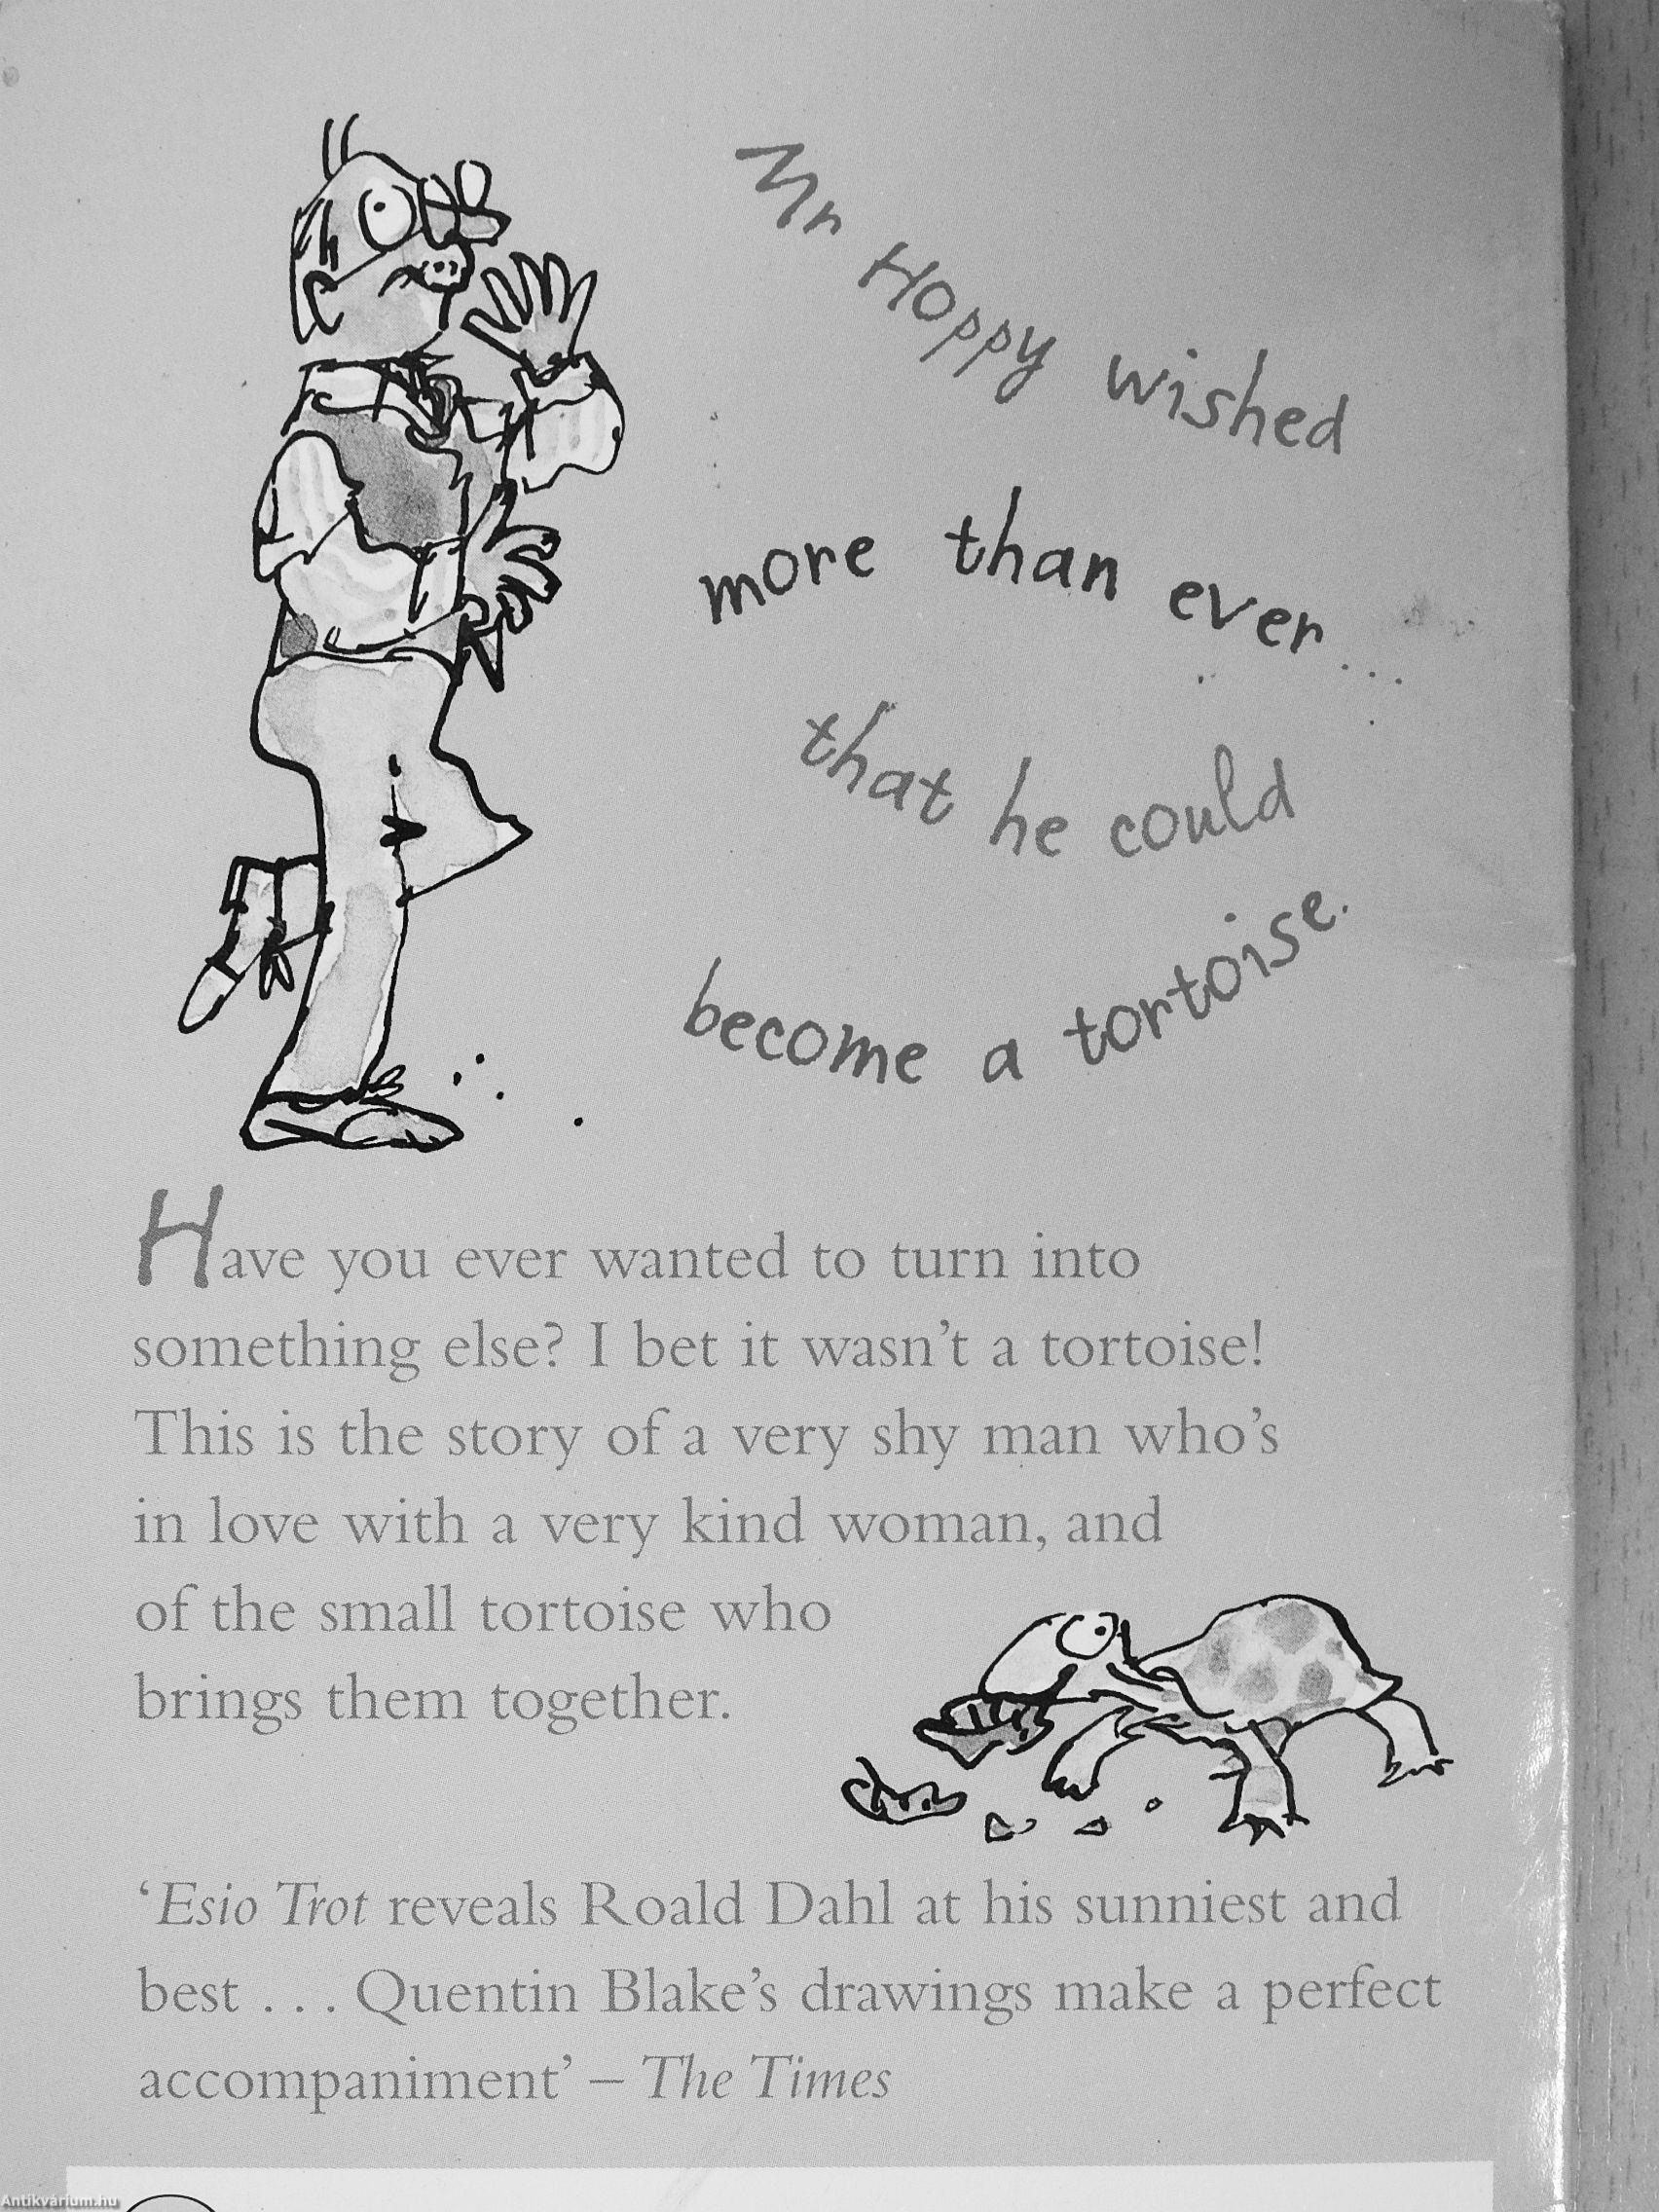 Mr Hoppy wished
more than ever...
that he could
become a tortoise.
Have you ever wanted to turn into
something else? I bet it wasn’t a tortoise!
This is the story of a very shy man who’s
in love with a very kind woman, and
of the small tortoise who
brings them together.
‘Esio Trot reveals Roald Dahl at his sunniest and
best . . . Quentin Blake’s drawings make a perfect
accompaniment’ – The Times
Antikvárium.hu